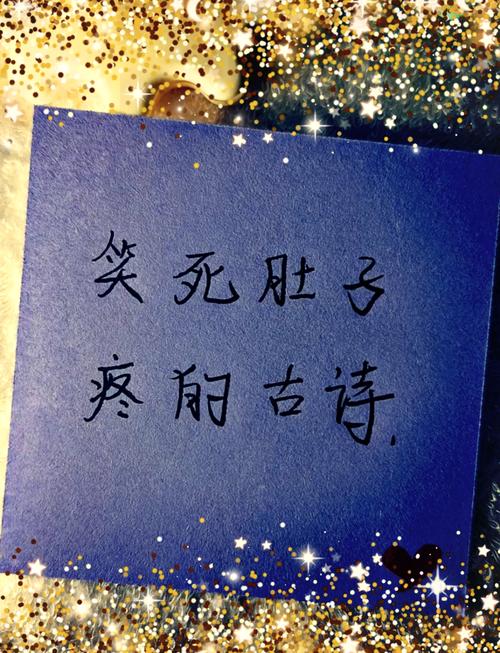 笑死肚子
疼的古诗.